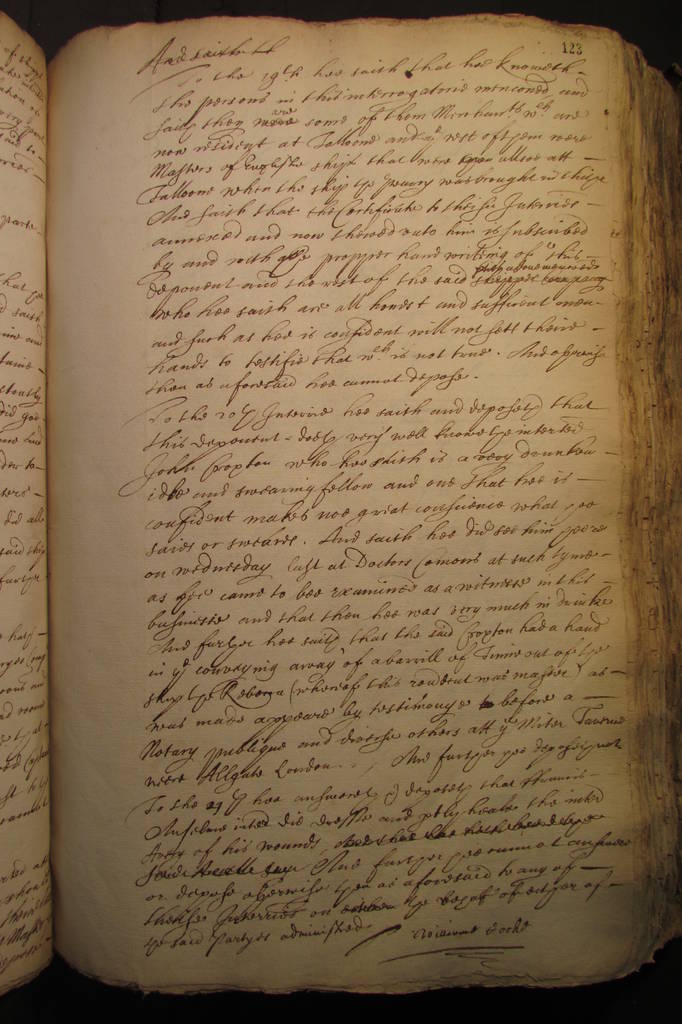 123
And saith th
To the 19th hee saith that hee knoweth
the persons in this interrogatorie menconed and
saith they are some of them Merchants wch are
now resident at Talloone and ye rest of them were
Masters of English shipps that were then allsoe att
Talloone when the ship the was brought in thither
And saith that the Certificate to theise Interries
annexed and now shewed unto him is subscribed
by and with the propper hand writing of this
deponent and the rest of the said
who hee saith are all honest and sufficient men
and such as hee is confident will not sett theire
hands to testifie that wch is not true. And otherwise
then as aforesaid hee cannot depose.
To the 20th Interrie hee saith and deposeth that
this deponent doeth very well knowe the interrate
John Croxton who hee saith is a very drunken
idle and swearing fellow and one that hee is
confident makes noe great conscience what hee
saies or sweares. And saith hee did see him here
on wednesday last at Doctors Comons at such tyme
as hee came to bee examined as a witnesse in this
businesse and that then hee was very much in drinke
And further hee saith that the said Croxton had a hand
in ye conveying away of a barrill of out of the
ship the Rebecca (whereof this rendent was master) as
was made appeare by testimonye before a
Notary publique and diverse others att ye Miter Taverne
neere Allgate London. And further hee deposeth not
To the 21 th hee answereth & deposeth that ffrancis
Anselme interred did dresse and the interred
of his wounds
And further hee cannot answere
or depose otherwise then as aforesaid to any of
theise Interries on the behalf of either of
the said partyes administred.
William